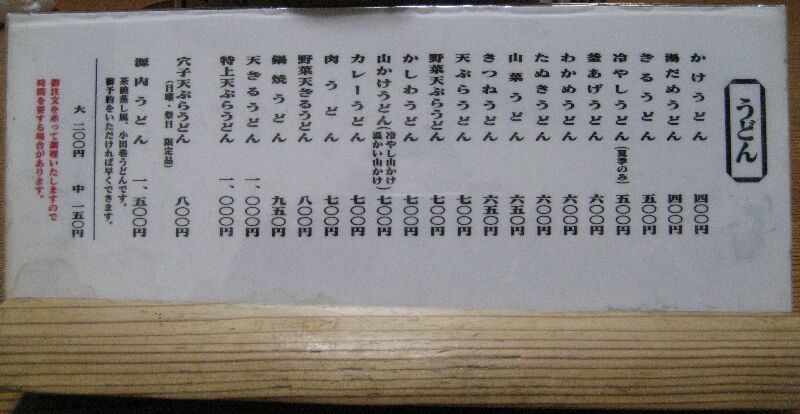 うどん
かけうどん 四〇〇円
湯だめうどん 四〇〇円
ざるうどん 五〇〇円
冷やしうどん(夏季のみ) 五〇〇円
釜あげうどん 六〇〇円
わかめうどん 六〇〇円
たぬきうどん 六〇〇円
山菜うどん 六五〇円
きつねうどん 六五〇円
天ぷらうどん 七〇〇円
野菜天ぷらうどん 七〇〇円
かしわうどん 七〇〇円
山かけうどん(冷やし山かけ 温かい山かけ) 七〇〇円
カレーうどん 七〇〇円
肉うどん 七〇〇円
野菜天ざるうどん 八〇〇円
鍋焼うどん 九五〇円
天ざるうどん 一、〇〇〇円
特上天ぷらうどん 一、〇〇〇円
穴子天ぷらうどん 八〇〇円
(日曜・祭日 限定品)
源内うどん 一、五〇〇円
茶碗蒸し風、小田巻うどんです。
御予約をいただければ早くできます。
大 二〇〇円 中 一五〇円
御注文を承って調理いたしますので
時間を要する場合があります。